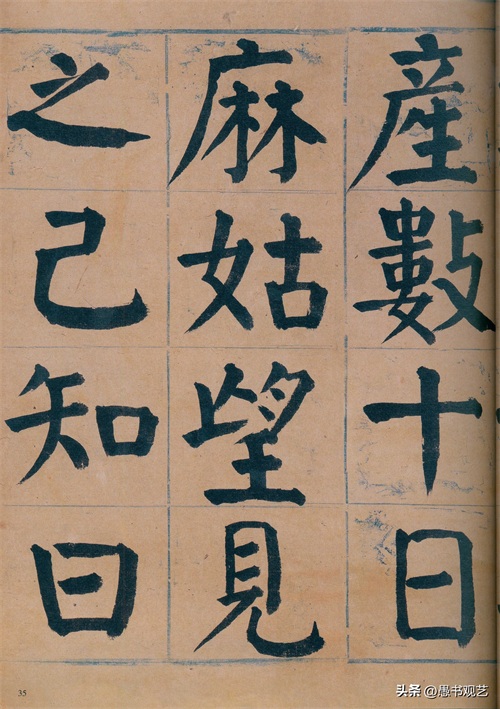 產數十日
麻姑望見
之己知曰
35
头条@愚书观艺